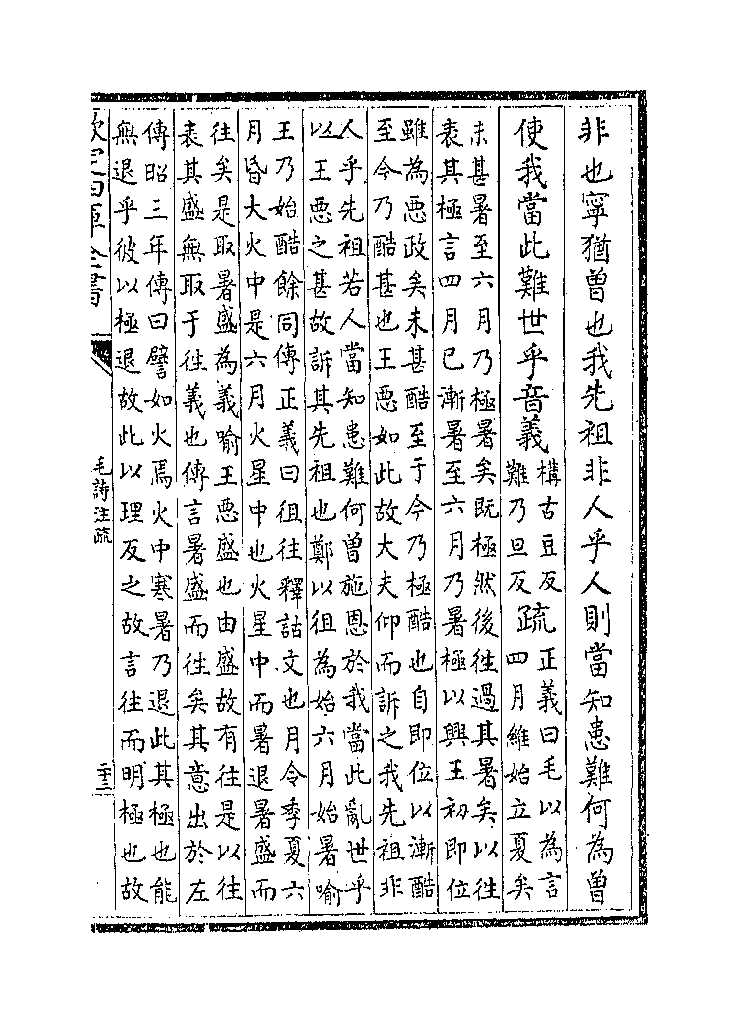 非也寧猶曾也我先祖非人乎人則當知患難何為曾
使我當此難世乎音義構古豆反難乃旦反疏正義曰毛以為言四月維始立夏矣
未甚暑至六月乃極暑矣既極然後往過其暑矣以往
表其極言四月已漸暑至六月乃暑極以興王初即位
雖為惡政矣未甚酷至于今乃極酷也自即位以漸酷
至今乃酷甚也王惡如此故大夫仰而訴之我先祖非
人乎先祖若人當知患難何曾施恩於我當此亂世乎
以王惡之甚故訴其先祖也鄭以徂為始六月始暑喻
王乃始酷餘同傳正義曰徂往釋詁文也月令季夏六
月昏大火中是六月火星中也火星中而暑退暑盛而
往矣是取暑盛為義喻王惡盛也由盛故有往是以往
表其盛無取于往義也傳言暑盛而往矣其意出於左
傳昭三年傳曰譬如火焉火中寒暑乃退此其極也能
無退乎彼以極退故此以理反之故言往而明極也故
欽定四庫全書
毛詩注疏
二十三